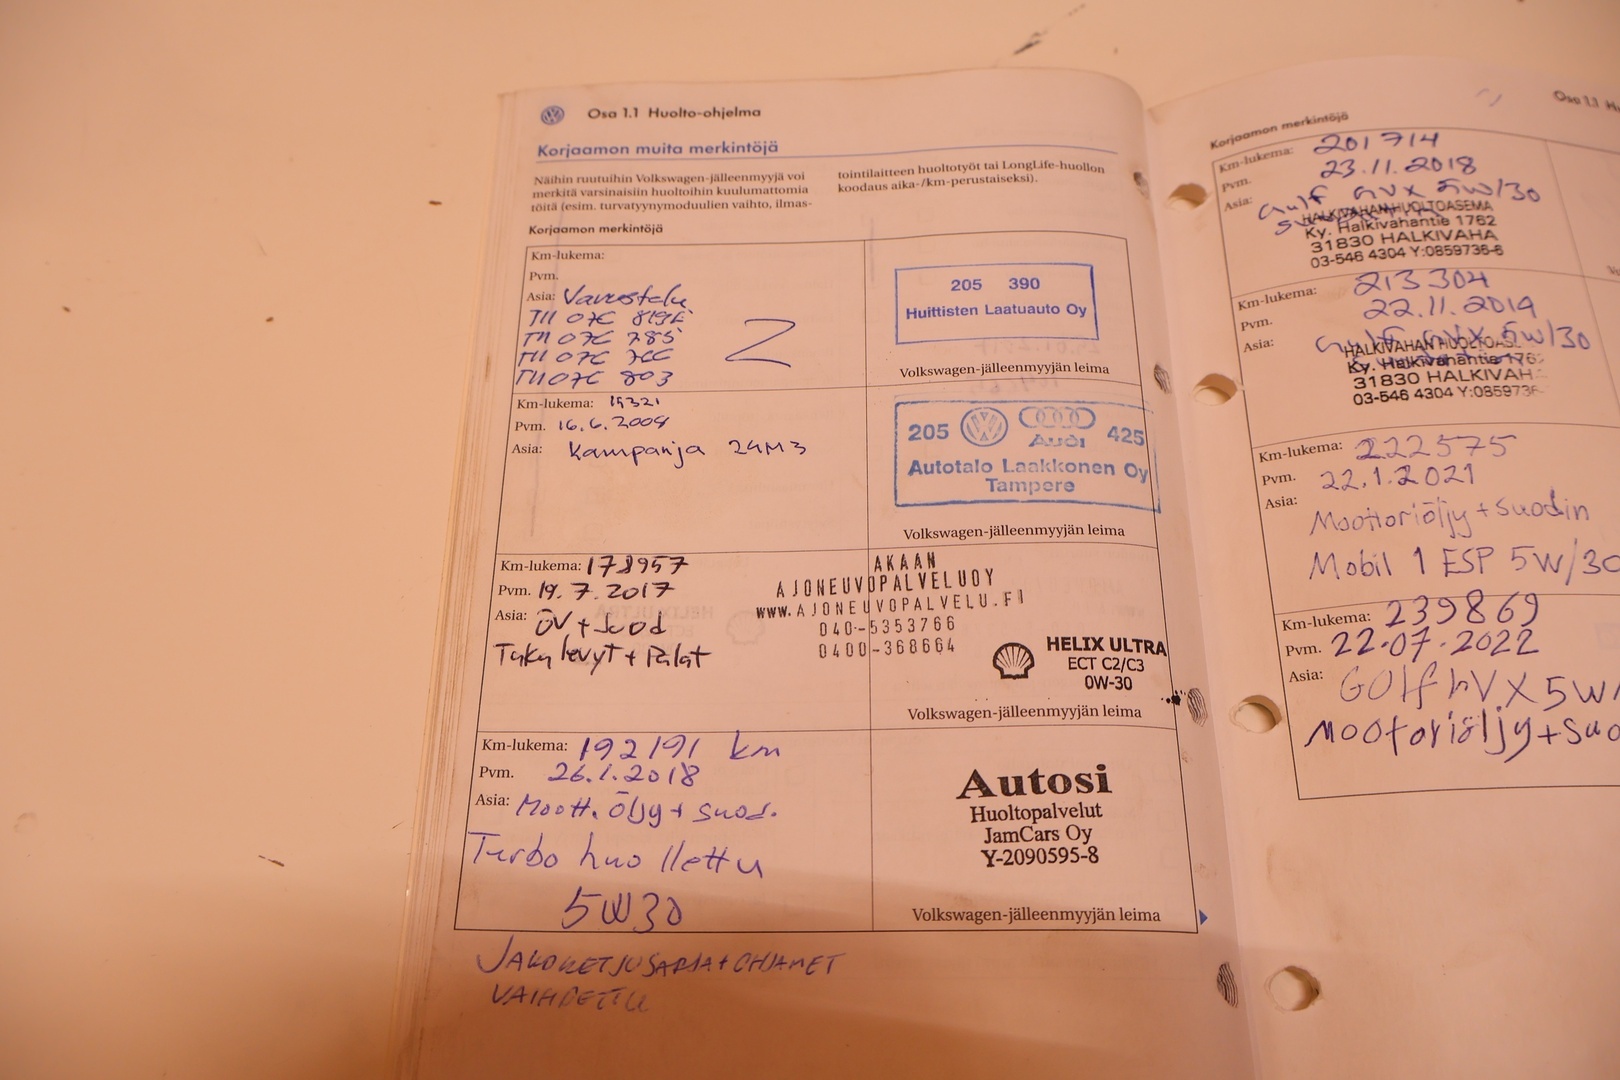 Osa 1.1 Huolto-ohjelma
Korjaamon muita merkintöjä
Näihin ruutuihin Volkswagen-jälleenmyyjä voi
merkitä varsinaisiin huoltoihin kuulumattomia
töitä (esim. turvatyynymoduulien vaihto, ilmas-
tointilaitteen huoltotyöt tai LongLife-huollon
koodaus aika-/km-perustaiseksi).
Korjaamon merkintöjä
Km-lukema:
Pvm.
Asia: Varustelu
205 390
Huittisten Laatuauto Oy
Volkswagen-jälleenmyyjän leima
Km-lukema: 19321
Pvm. 16.6.2009
Asia: Kampanja 24M3
205 Audi 425
Autotalo Laakkonen Oy
Tampere
Volkswagen-jälleenmyyjän leima
Km-lukema: 178957
Pvm. 19.7.2017
Asia: ÖV + Suod
Taka levyt + Palat
AKAAN
AJONEUVOPALVELU OY
WWW.AJONEUVOPALVELU.FI
040-5353766
0400-368664
HELIX ULTRA
ECT C2/C3
0W-30
Volkswagen-jälleenmyyjän leima
Km-lukema: 192191 km
Pvm. 26.1.2018
Asia: Moott. Öljy + suod.
Turbo huollettu
5W30
Autosi
Huoltopalvelut
JamCars Oy
Y-2090595-8
Volkswagen-jälleenmyyjän leima
JAKOKETJUSARJA + OHJAMET
VAIHDETTU
Osa 1.1
Korjaamon merkintöjä
Km-lukema: 201714
Pvm. 23.11.2018
Asia: Gulf nVX 5W/30
HALKIVAHAN HUOLTOASEMA
Ky. Halkivahantie 1762
31830 HALKIVAHA
03-546 4304 Y:0859736-6
Km-lukema: 213304
Pvm. 22.11.2019
Asia: Gulf nVX 5W/30
HALKIVAHAN HUOLTOAS
Ky. Halkivahantie 176
31830 HALKIVAH
03-546 4304 Y:085973
Km-lukema: 222575
Pvm. 22.1.2021
Asia:
Moottoriöljy + suodin
Mobil 1 ESP 5W/30
Km-lukema: 239869
Pvm. 22.07.2022
Asia: GOlf nVX 5W/
mootoriöljy + suo